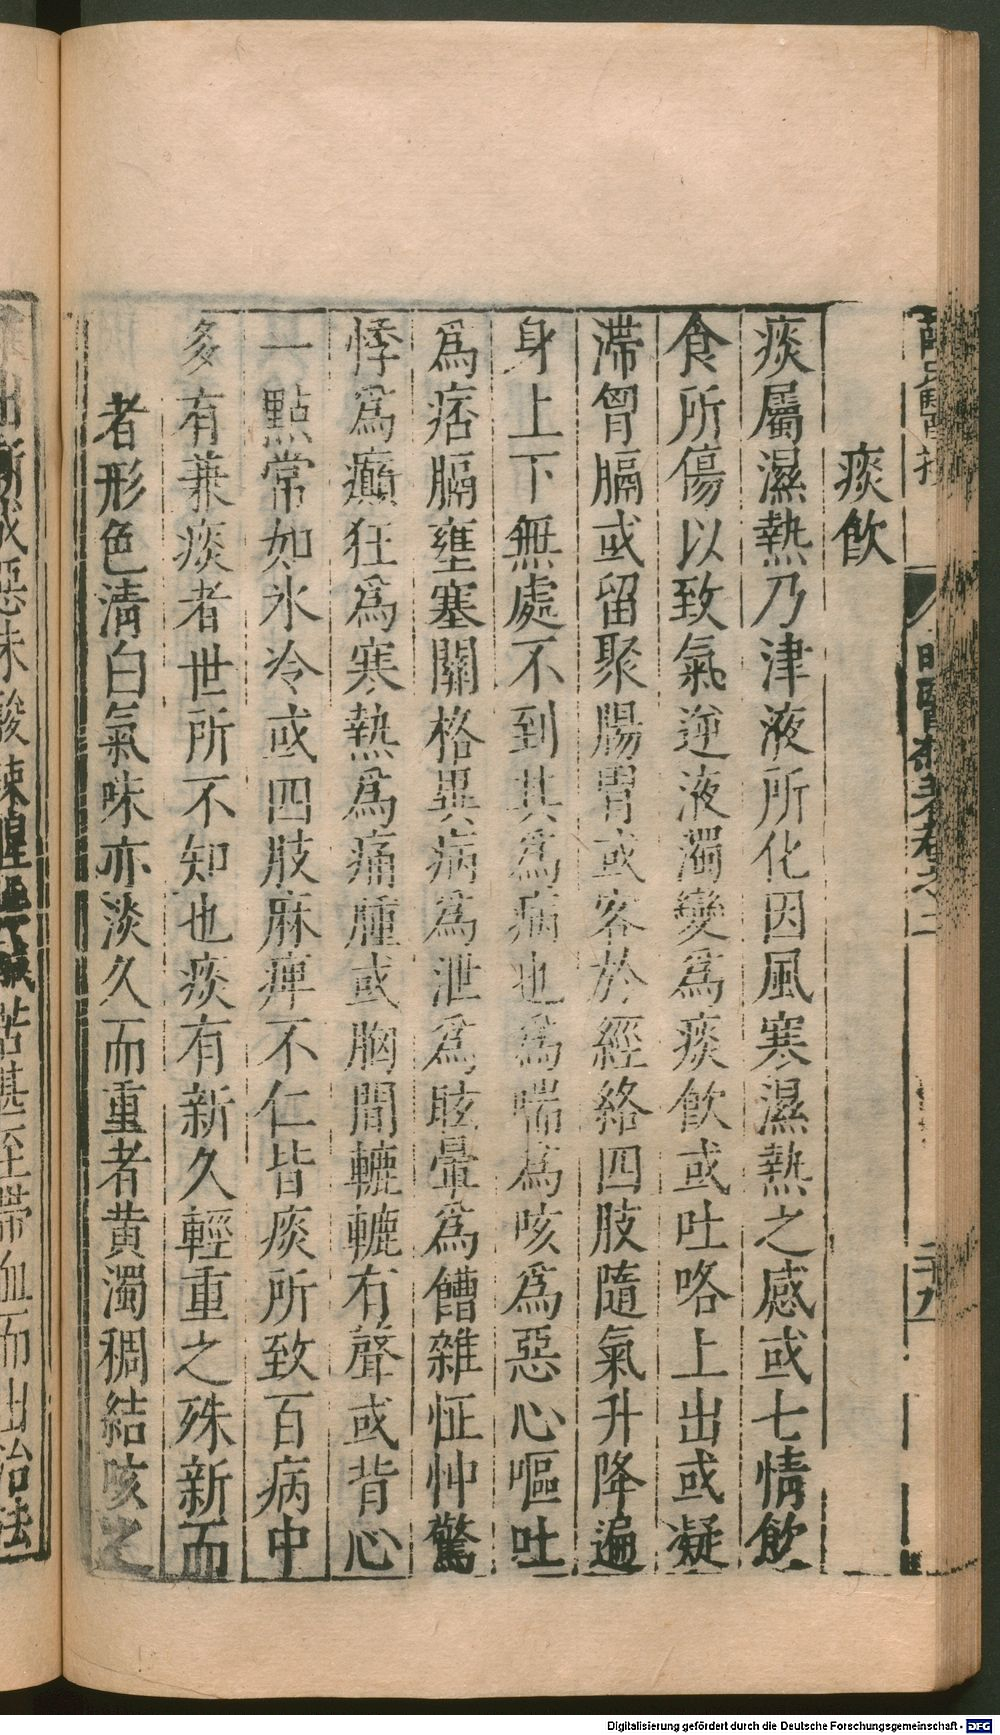 痰飲
痰屬濕熱乃津液所化因風寒濕熱之感或七情飲
食所傷以致氣逆液濁變爲痰飲或吐咯上出或凝
滯胷膈或留聚腸胃或客於經絡四肢隨氣升降遍
身上下無處不到其爲病也爲喘爲咳爲惡心嘔吐
爲痞膈壅塞關格異病爲泄爲眩暈爲饒雜怔忡驚
悸爲癲狂爲寒熱爲痛腫或胸間轆轆有聲或背心
一點常如氷冷或四肢麻痺不仁皆痰所致百病中
多有兼痰者世所不知也痰有新久輕重之殊新而
者形色清白氣味亦淡久而重者黄濁稠結咳之
二十九
Digitalisierung gefördert durch die Deutsche Forschungsgemeinschaft - DFG